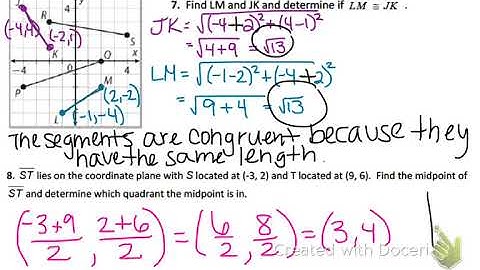 7. Find LM and JK and determine if LM ≅ JK .
JK = √(-4+2)²+(4-1)²
= √4+9 = √13
LM = √(-1-2)²+(-4+2)²
= √9+4 = √13
(-4,4)
R
(-2,1)
K
S
-4
O
4
P
M
(2,-2)
L
(-1,-4)
-4
The segments are congruent because they
have the same length.
8. ST lies on the coordinate plane with S located at (-3, 2) and T located at (9, 6). Find the midpoint of
ST and determine which quadrant the midpoint is in.
(-3+9/2, 2+6/2) = (6/2, 8/2) = (3,4)
Created with Doceri